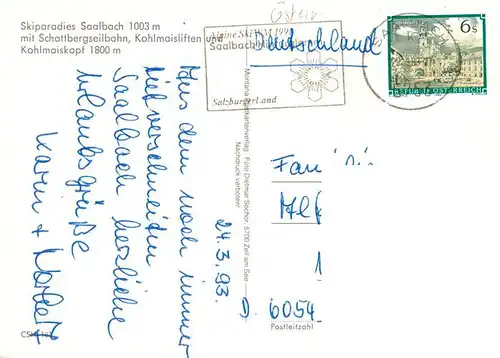 Skiparadies Saalbach 1003 m
mit Schattbergseilbahn, Kohlmaisliften und
Kohlmaiskopf 1800 m
Alpine Ski WM 1991
Saalbach
SalzburgerLand
Österr.
Deutschland
6 S
REPUBLIK ÖSTERREICH
Aus dem noch immer
tief verschneiten
Saalbach herzliche
Urlaubsgrüße
Karin + Norbert
24.3.93.
Montana Ansichtskartenverlag Foto Dietmar Sochor, 5700 Zell am See
Nachdruck verboten!
Fam
Alf
1
D. 6054
Postleitzahl